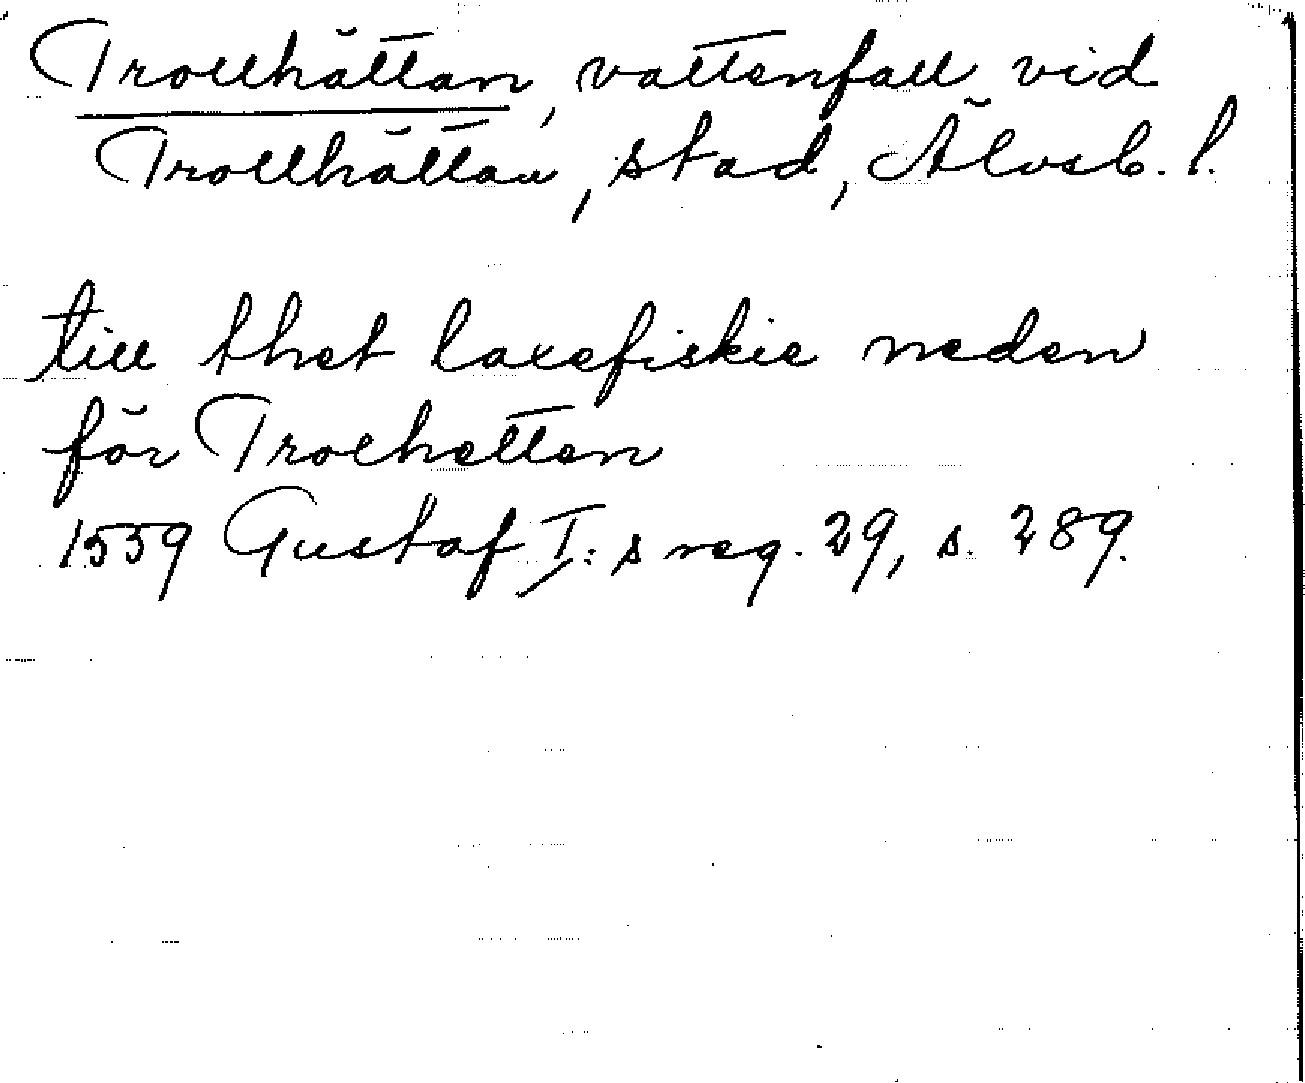 Trollhättan, vattenfall vid
Trollhättan, stad, Älvsb. l.
till thet laxefiskie neden
för Trolhetten
1559 Gustaf I:s reg. 29, s. 289.